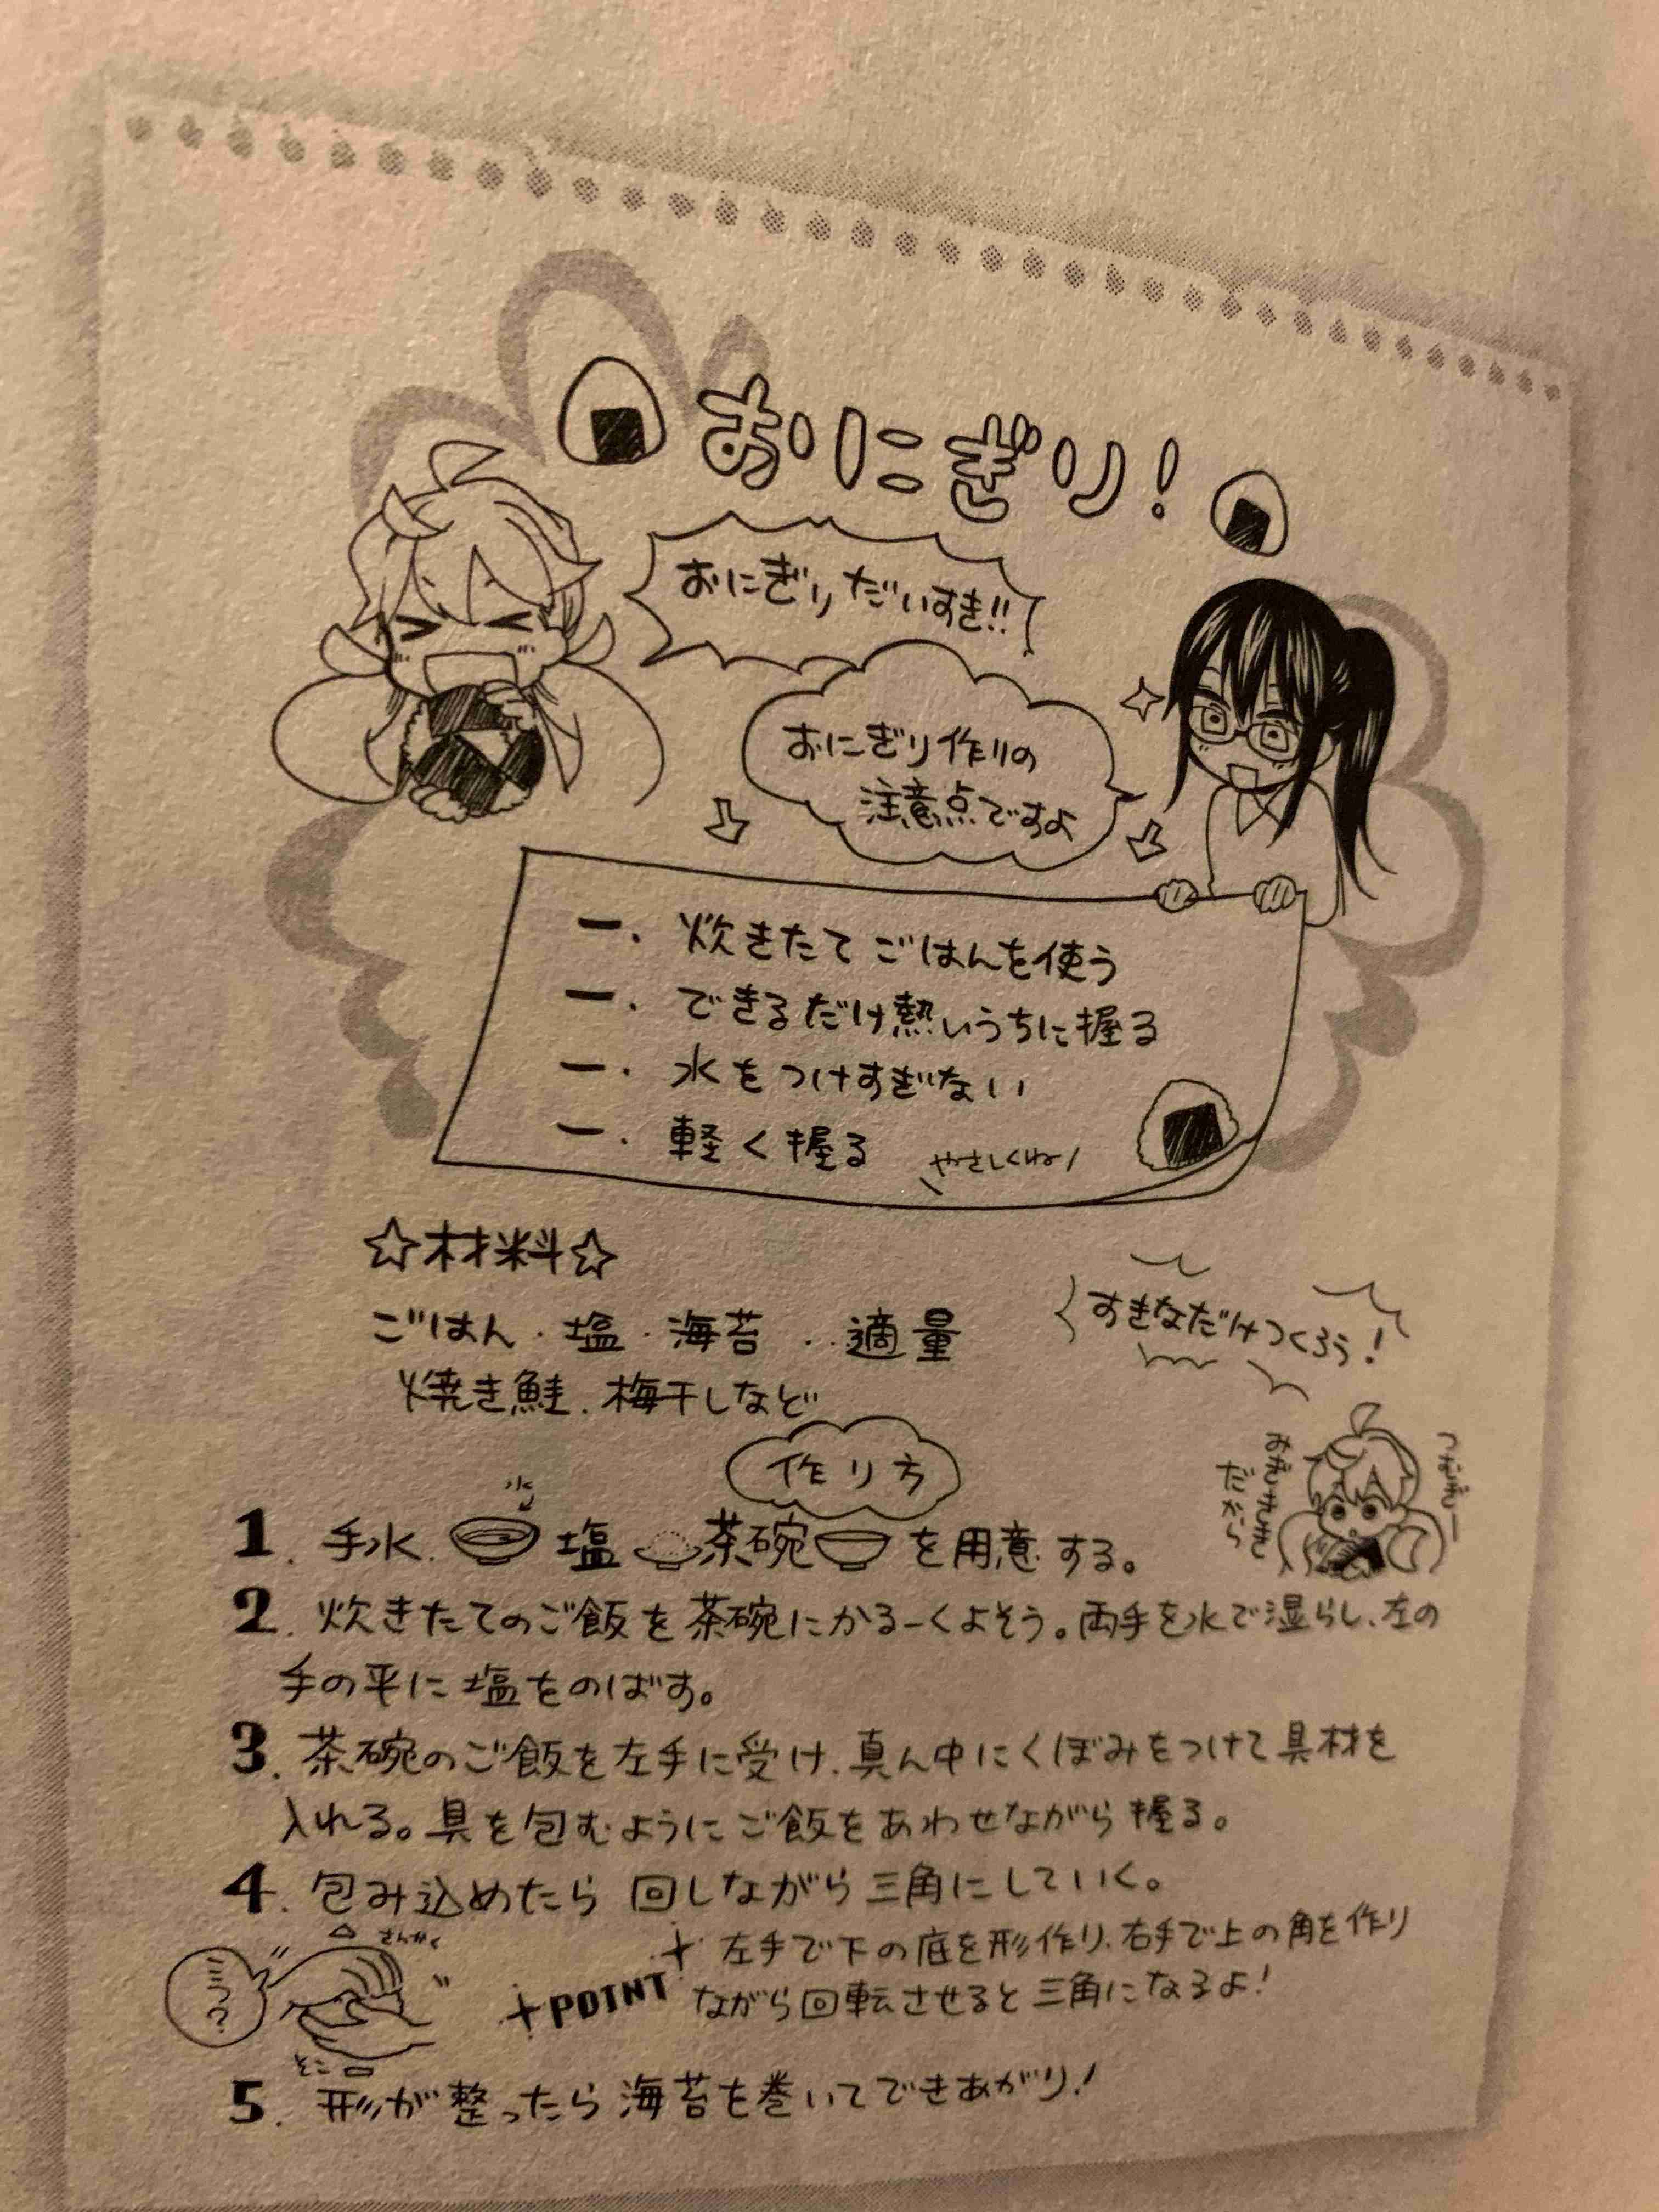 おにぎり！
おにぎりだいすき!!
おにぎり作りの
注意点ですよ
一．炊きたてごはんを使う
一．できるだけ熱いうちに握る
一．水をつけすぎない
一．軽く握る
やさしくね
☆材料☆
ごはん・塩・海苔‥適量
焼き鮭．梅干しなど
すきなだけつくろう！
つむぎー
みんなすき
だから
作り方
水
1．手水．塩 茶碗を用意する。
2．炊きたてのご飯を茶碗にかるーくよそう。両手を水で湿らし、左の
手の平に塩をのばす。
3．茶碗のご飯を左手に受け、真ん中にくぼみをつけて具材を
入れる。具を包むようにご飯をあわせながら握る。
4．包み込めたら回しながら三角にしていく。
さんかく
ミニっ？
そこ
POINT
左手で下の底を形作り、右手で上の角を作り
ながら回転させると三角になるよ！
5．形が整ったら海苔を巻いてできあがり！